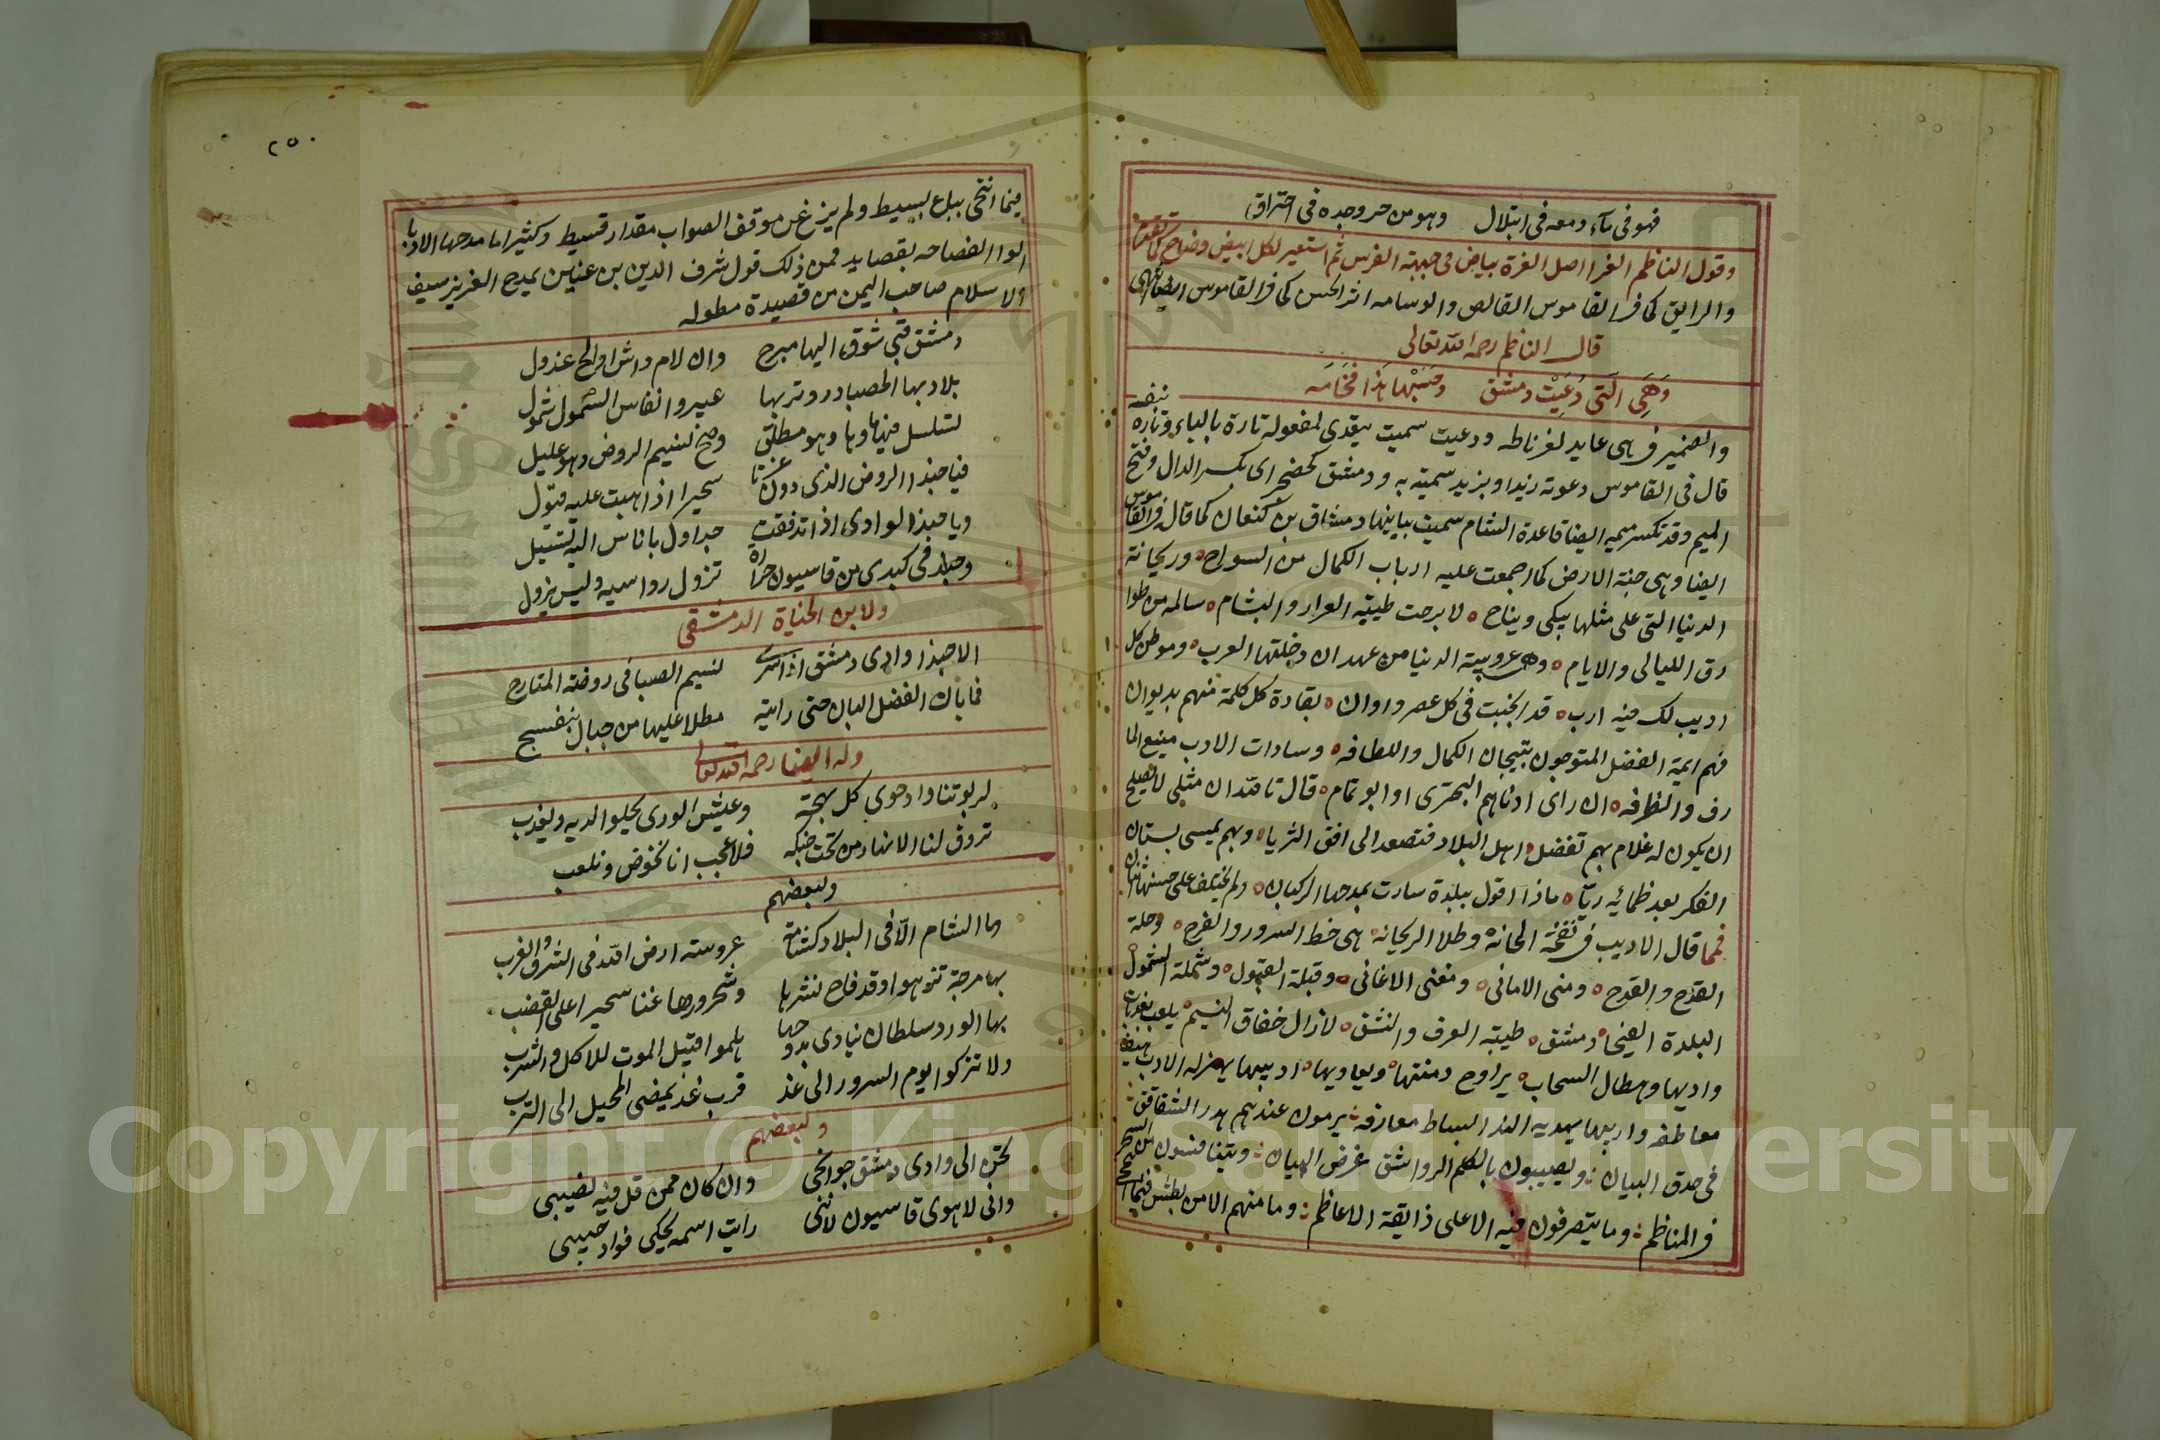 فهو فى مآء دمعه فى ابتلال وهو من حر وجده فى احتراق
وقول الناظم الغرا اصل الغرة بياض فى جبهة الفرس ثم استعير لكل ابيض وضاح كما تقدم
والرايق كما فى القاموس الخالص والوسامه اثر الحسن كما فى القاموس ايضا
قال الناظم رحمه الله تعالى
وَهَىِ الَّتى دُعِيَتْ دمشق وحَسْبُها هَذا فَخَامَه
والضمير فى هى عايد لغرناطه ودعيت سميت يتعدى لمفعوله تارة بالباء وتارة بنفسه
قال فى القاموس دعوته زيدا وبزيد سميته به ودمشق كحضجر اى بكسر الدال وفتح
الميم وقد تكسر ميمه ايضا قاعدة الشام سميت ببانيها دمشاق بن كنعان كما قاله فى القاموس
ايضا وهى جنة الارض كما اجمعت عليه ارباب الكمال من السواح وريحانة
الدنيا التى على مثلها يبكى ويناح لا برحت طيبة العرار والبشام سالمه من طوا
رق الليالى والايام وهى عروسة الدنيا من عهد ان دخلتها العرب وموطن كل
اديب لك فيه ارب قد انجبت فى كل عصر واوان بقادة كل كلمة منهم بديوان
فهم ايمة الفضل المتوجون بتيجان الكمال واللطافه وسادات الادب منيع المعا
رف والظرفه ان راى ادناهم البحترى او ابو تمام قال تا لله ان مثلى لا يصلح
ان يكون له غلام بهم تفضل اهل البلاد فتصعد الى افق الثريا وبهم يمسى بستان
الفكر بعد ظمائه ريّا ماذا اقول ببلدة سارت بمدحها الركبان ولم يختلف على حسنها اثنان
فما قال الاديب فى نفحة الحانة وطلا الريحانه هى خط السرور والفرح وحلة
القدح والقدح ومنى الامانى ومغنى الاغانى وقبلة القبول وشملة الشمول
البلدة الفيحا دمشق طيبة العرف والنشق لا زال خفاق النسيم يلعب بغربات
واديها وهطال السحاب يراوح دمنتها ويغاديها اديبها يهزله الادب
معاطفه واريبها يهديه الند البساط معارفه يرمون عندهم هدر الشقاقق
فى حدق البيان ويصيبون بالكلم الرواشق غرض البيان ويتنافسون
فى المناظم وما يتصرفون فيه الا على ذايقة الاعاظم وما منهم الا من بطش
٢٥٠
فيما انتحى بباع بسيط ولم يزغ عن موقف الصواب مقدار قسيط وكثيرا ما مدحها الادبا
الوا الفصاحه بقصايد فمن ذلك قول شرف الدين بن عنين يمدح العزيز سيف
الاسلام صاحب اليمن من قصيدة مطوله
دمشق فبى شوق اليها مبرح وان لام واش او الح عذول
بلاد بها الحصبا در وتربها عبير وانفاس الشمول شمول
تسلسل فيها ماؤها وهو مطلق وصح نسيم الروض وهو عليل
فيا حبذا الروض الذى دون عزتا سحيرا اذا هبت عليه قبول
ويا حبذا الوادى اذا تدفقت جداول باناس اليه تسيل
وحبذا فى كبدى من قاسيون حرارة تزول رواسيه وليس يزول
ولابن الحناية الدمشقى
الا حبذا وادى دمشق اذا سرى نسيم الصبا فى روضه المتارج
فما بان الفضل البان حتى رايته مطلا عليها من جبال بنفسج
وله ايضا رحمه الله تعالى
لربوتنا واد حوى كل بهجة وعيش الورى يحلو الديه ويعذب
تروق لنا الانهار من تحت جنكه فلا عجب انا نخوض ونلعب
ولبعضهم
ما الشام الّا فى البلاد كشامة عروسة ارض الله فى الشرق والغرب
بها مرجة تزهو وقد فاح نشرها وشحرورها غنا سحيرا على القضب
بها الورد سلطان ينادى بدوحها هلموا قتيل الموت للاكل والشرب
ولا تتركوا يوم السرور الى غد قرب غد يمضى المحيل الى الترب
ولبعضهم
تحن الى وادى دمشق جوانحى وان كان ممن قل فيه نصيبى
وانى لاهوى قاسيون لاننى رايت اسمه يحكى فواد حبيبى
Copyright © King Saud University